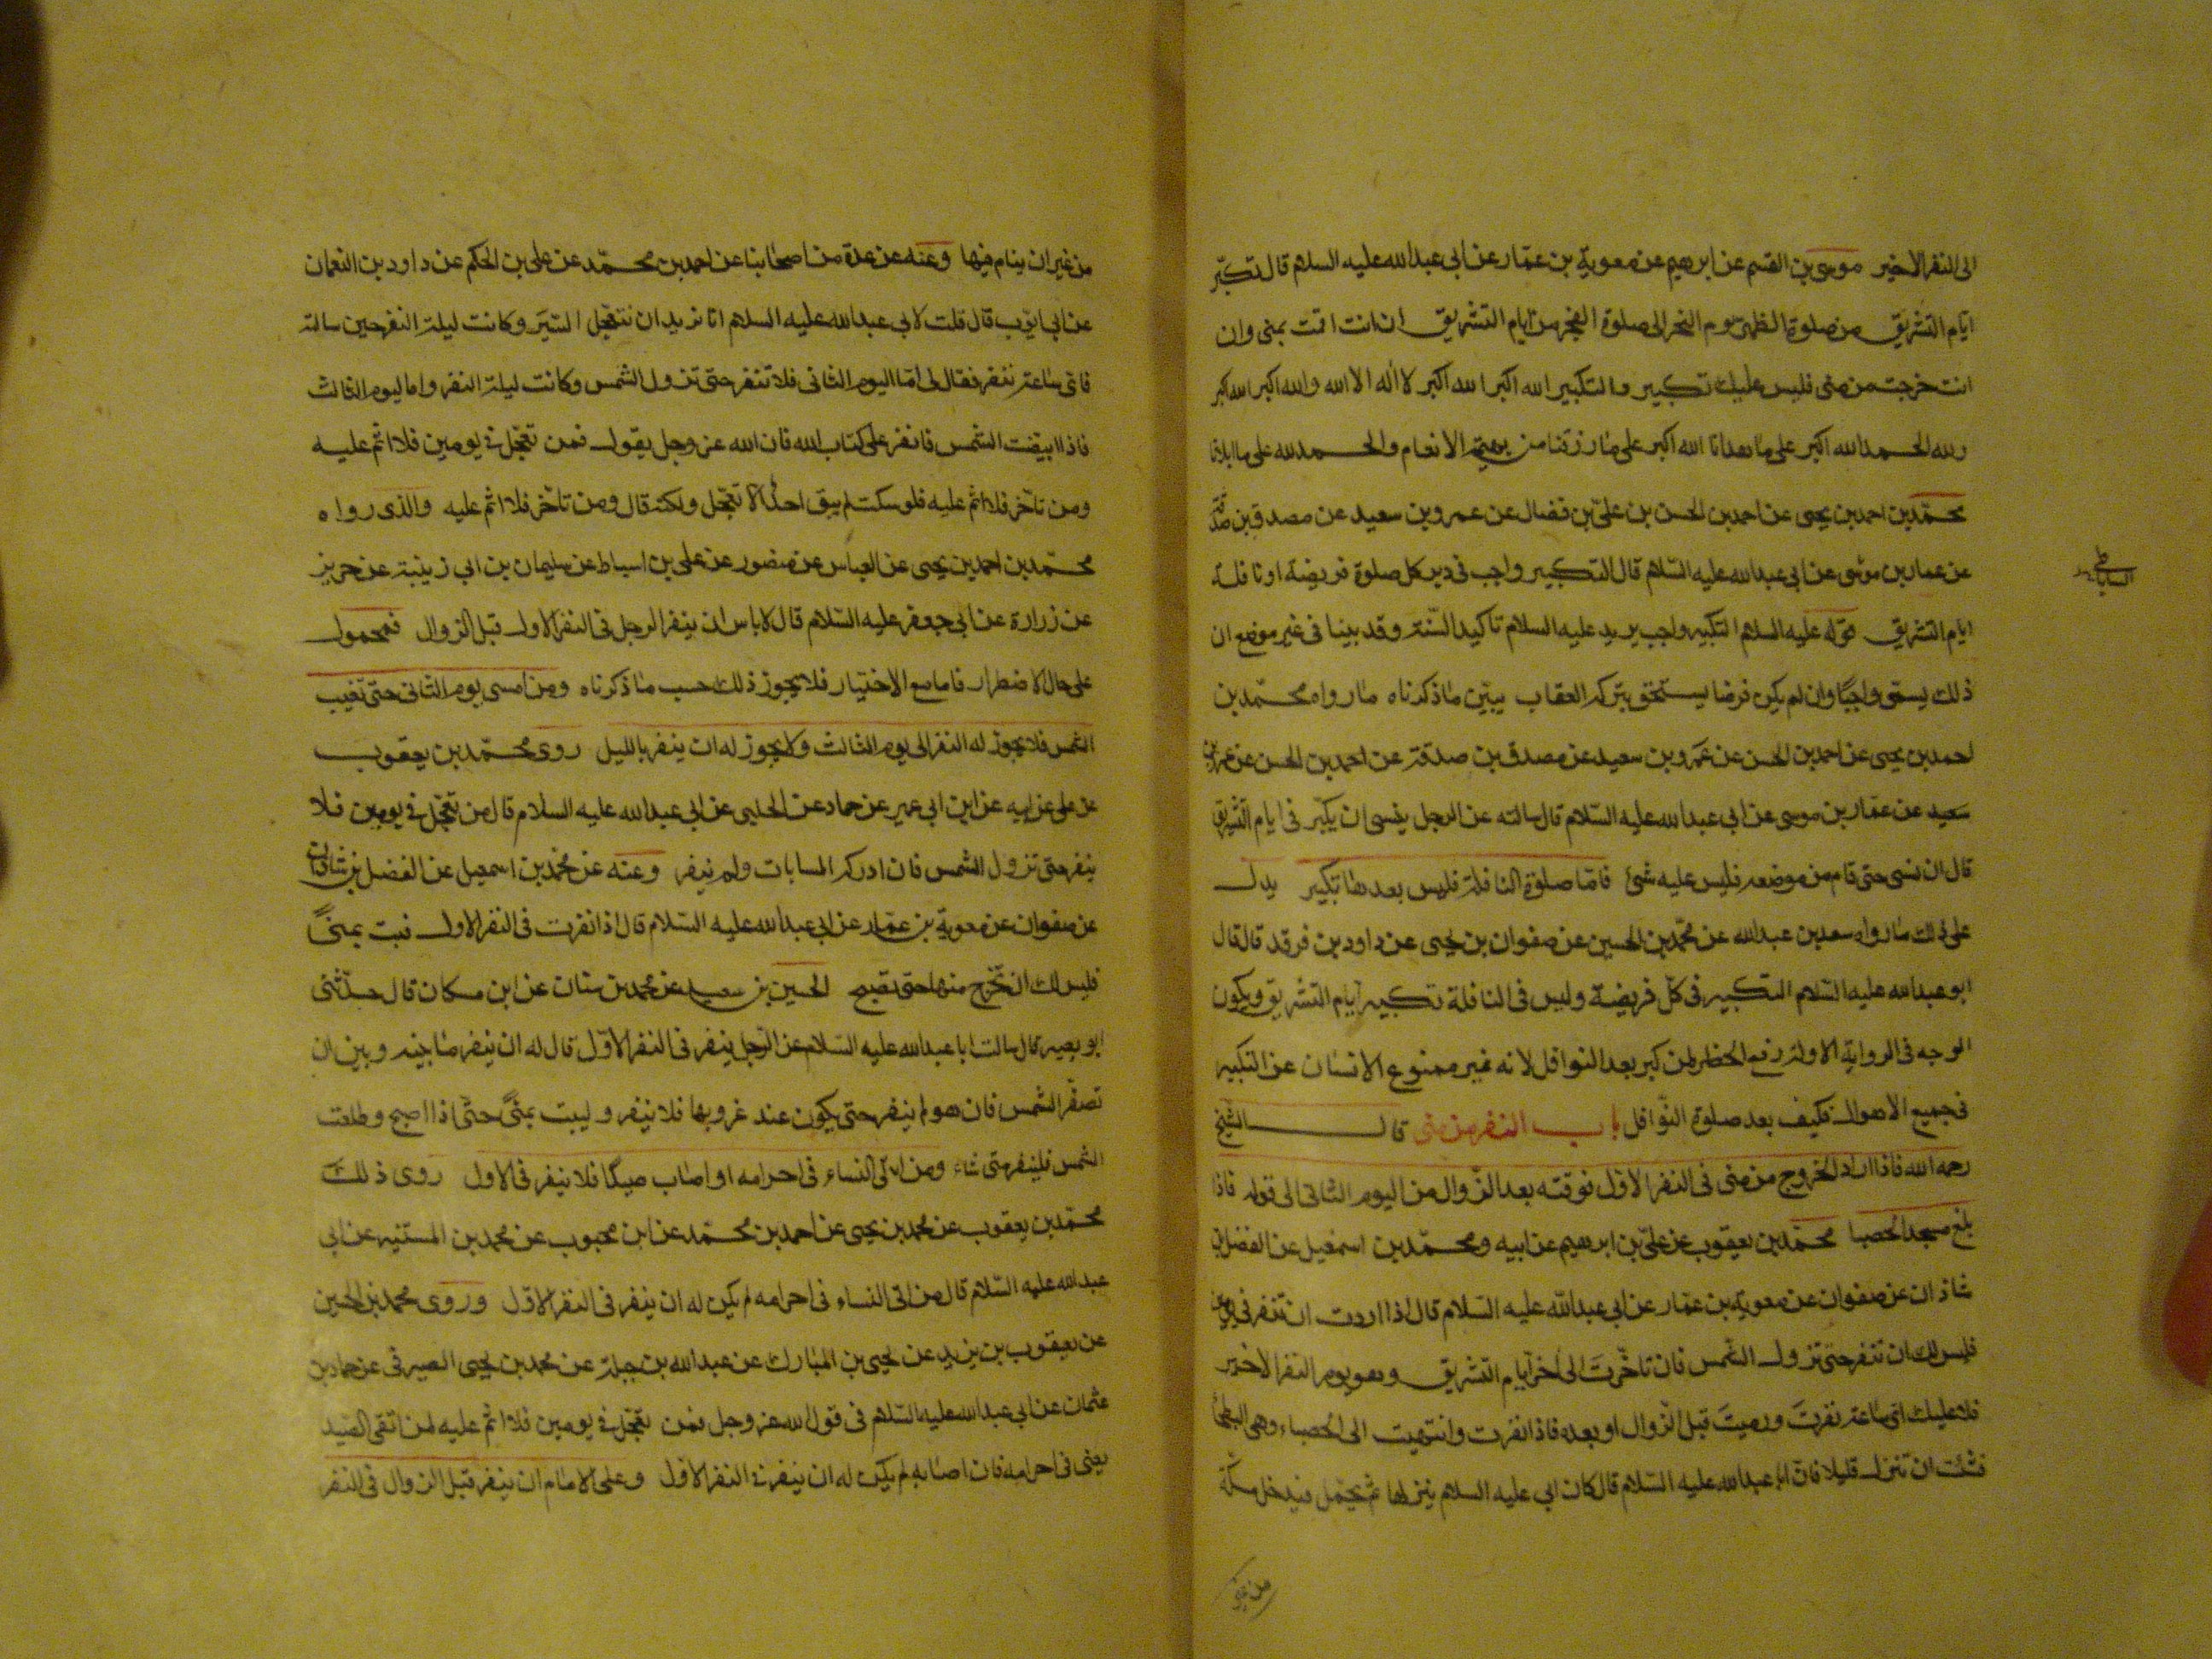 الى النفر الاخير موسى بن القسم عن ابرهيم عن معوية بن عمّار عن ابى عبدالله عليه السلام قال تكبّر
ايّام التشريق من صلوة الظهر يوم النحر الى صلوة الفجر من ايام التشريق ان انت اقمت بمنى وان
انت خرجت من منى فليس عليك تكبير والتكبير الله اكبر الله اكبر لا اله الا الله والله اكبر الله اكبر
ولله الحمد الله اكبر على ما هدانا الله اكبر على ما رزقنا من بهيمة الانعام والحمد لله على ما ابلانا
محمّد بن احمد بن يحيى عن احمد بن الحسن بن علىّ بن فضال عن عمرو بن سعيد عن مصدق بن صدقة
عن عمار بن موسى عن ابى عبدالله عليه السّلام قال التكبير واجب فى دبر كل صلوة فريضة او نافلة
الساباطى
ايام التشريق قوله عليه السلام التكبير واجب يريد عليه السلام تاكيد السّنة وقد بينا فى غير موضع ان
ذلك يسمّى واجبًا وان لم يكن فرضا يستحق بتركه العقاب يبيّن ما ذكرناه ما رواه محمّد بن
احمد بن يحيى عن احمد بن الحسن عن عمرو بن سعيد عن مصدق بن صدقة عن احمد بن الحسن عن عمرو بن
سعيد عن عمّار بن موسى عن ابى عبدالله عليه السّلام قال سالته عن الرجل ينسى ان يكبّر فى ايام التّشريق
قال ان نسى حتى قام من موضعه فليس عليه شئ فامّا صلوة النافلة فليس بعدها تكبير يدل
على ذلك ما رواه سعد بن عبدالله عن محمّد بن الحسين عن صفوان بن يحيى عن داود بن فرقد قال قال
ابو عبدالله عليه السّلام التكبير فى كلّ فريضة وليس فى النافلة تكبير ايام التشريق ويكون
الوجه فى الرواية الاولة رفع الحظر لمن كبر بعد النوافل لانه غير ممنوع الانسان عن التكبير
فى جميع الاحوال فكيف بعد صلوة النّوافل باب النفر من منى قال الشّيخ
رحمه الله فاذا اراد الخروج من منى فى النفر الاوّل فوقته بعد الزّوال من اليوم الثانى الى قوله فاذا
بلغ مسجد الحصبا محمّد بن يعقوب عن علىّ بن ابرهيم عن ابيه ومحمّد بن اسمعيل عن الفضل بن
شاذان عن صفوان عن معوية بن عمّار عن ابى عبدالله عليه السّلام قال اذا اردت ان تنفر فى يومين
فليس لك ان تنفر حتى تزول الشّمس فان تاخّرتَ الى اخر ايام التّشريق وهو يوم النفر الاخير
فلا عليك اىّ ساعة نفرتَ ورميتَ قبل الزّوال او بعده فاذا نفرت وانتهيت الى الحصباء وهى البطحا
فشئت ان تنزل قليلا فان ابا عبدالله عليه السّلام قال كان ابى عليه السلام ينزلها ثم يحمل فيدخل مكّة
من غير
من غير ان ينام فيها وعنه عن عدة من اصحابنا عن احمد بن محمّد عن على بن الحكم عن داود بن النعمان
عن ابى ايّوب قال قلت لابى عبدالله عليه السلام انا نريد ان نتعجّل السّير وكانت ليلة النفر حين سالته
فاىّ ساعة ننفر فقال لى امّا اليوم الثانى فلا تنفر حتى تزول الشمس وكانت ليلة النفر واما اليوم الثالث
فاذا ابيضت الشمس فانفر على كتاب الله فان الله عزوجل يقول فمن تعجّل فى يومين فلا اثم عليه
ومن تاخّر فلا اثم عليه فلو سكت لم يبق احدٌ الا تعجّل ولكنه قال ومن تاخّر فلا اثم عليه والذى رواه
محمّد بن احمد بن يحيى عن العباس عن منصور عن على بن اسباط عن سليمان بن ابى زينبة عن حريز
عن زرارة عن ابى جعفر عليه السّلام قال لا باس ان ينفر الرجل فى النفر الاول قبل الزوال فمحمول
على حال الاضطرار فاما مع الاختيار فلا يجوز ذلك حسب ما ذكرناه ومن امسى يوم الثانى حتى تغيب
الشمس فلا يجوز له النفر الى يوم الثالث ولا يجوز له ان ينفر بالليل روى محمّد بن يعقوب
عن على عن ابيه عن ابن ابى عمير عن حماد عن الحلبى عن ابى عبدالله عليه السلام قال من تعجّل فى يومين فلا
ينفر حتى تزول الشمس فان ادركه المسا بات ولم ينفر وعنه عن محمّد بن اسمعيل عن الفضل بن شاذان
عن صفوان عن معوية بن عمّار عن ابى عبدالله عليه السّلام قال اذا نفرت فى النفر الاول فبت بمنىً
فليس لك ان تخرج منها حتى تصبح الحسين بن سعيد عن محمد بن سنان عن ابن مسكان قال حدّثنى
ابو بصير قال سالت ابا عبدالله عليه السّلام عن الرّجل ينفر فى النفر الاوّل قال له ان ينفر ما بينه وبين ان
تصفّر الشمس فان هو لم ينفر حتى يكون عند غروبها فلا ينفر وليبت بمنىً حتّى اذا اصبح وطلعت
الشمس فلينفر متى شاء ومن اتى النساء فى احرامه او اصاب صيدًا فلا ينفر فى الاول روى ذلك
محمّد بن يعقوب عن محمد بن يحيى عن احمد بن محمّد عن ابن محبوب عن محمد بن المستنير عن ابى
عبدالله عليه السّلام قال من اتى النساء فى احرامه لم يكن له ان ينفر فى النفر الاوّل وروى محمد بن الحسين
عن يعقوب بن يزيد عن يحيى بن المبارك عن عبدالله بن جبلة عن محمد بن يحيى الصيرفى عن حماد بن
عثمان عن ابى عبدالله عليه السّلام فى قول الله عزوجل فمن تعجّل فى يومين فلا اثم عليه لمن اتقى الصّيد
يعنى فى احرامه فان اصابه لم يكن له ان ينفر فى النفر الاول وعلى الامام ان ينفر قبل الزوال فى النفر